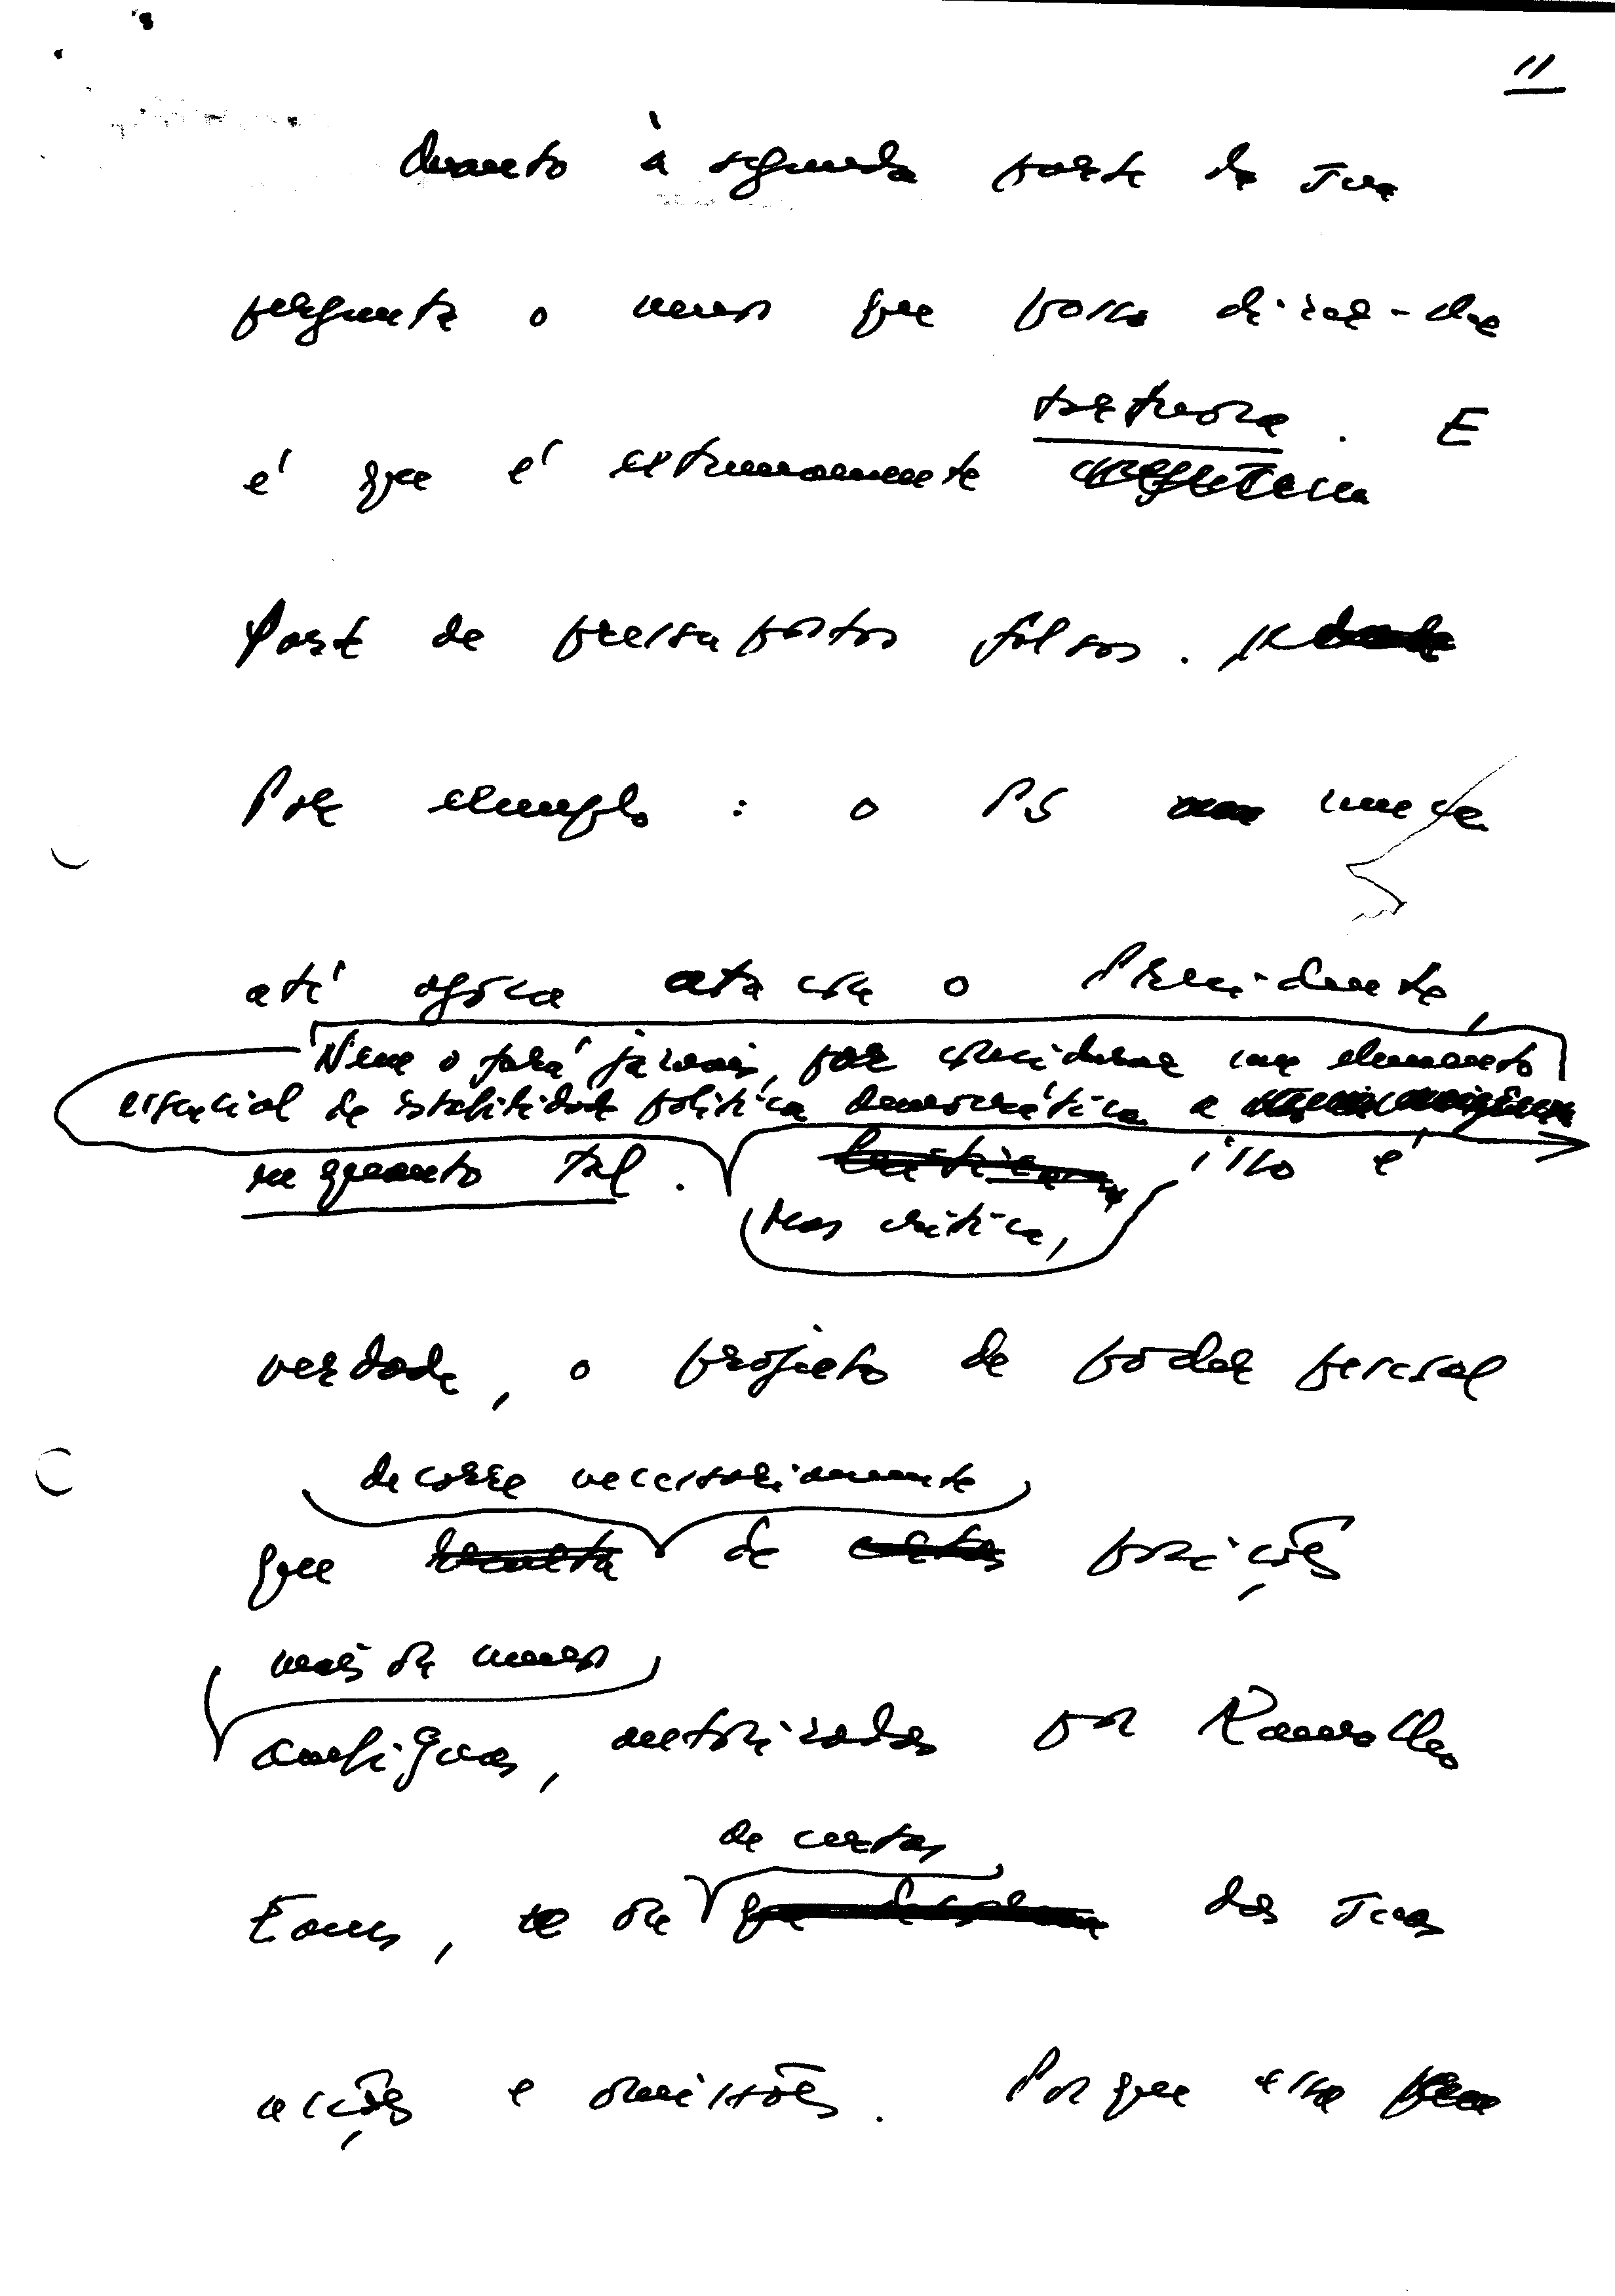 11
Quanto à segunda parte da sua
pergunta o menos que posso dizer-lhe
tortuosa. E
é que é extremamente
Parte de pressupostos falsos.
Por exemplo: o PS nunca
até agora atacou o Presidente,
Nem o fará jamais, por considerar um elemento
essencial de estabilidade política democrática a
enquanto tal. isso é
Mas critica,
verdade, o projecto de poder pessoal
decorre necessariamente
que resulta de certas posições
mais ou menos
ambíguas, autorizadas por Ramalho
de certas
Eanes, ou das suas
acções e omissões. Porque esse